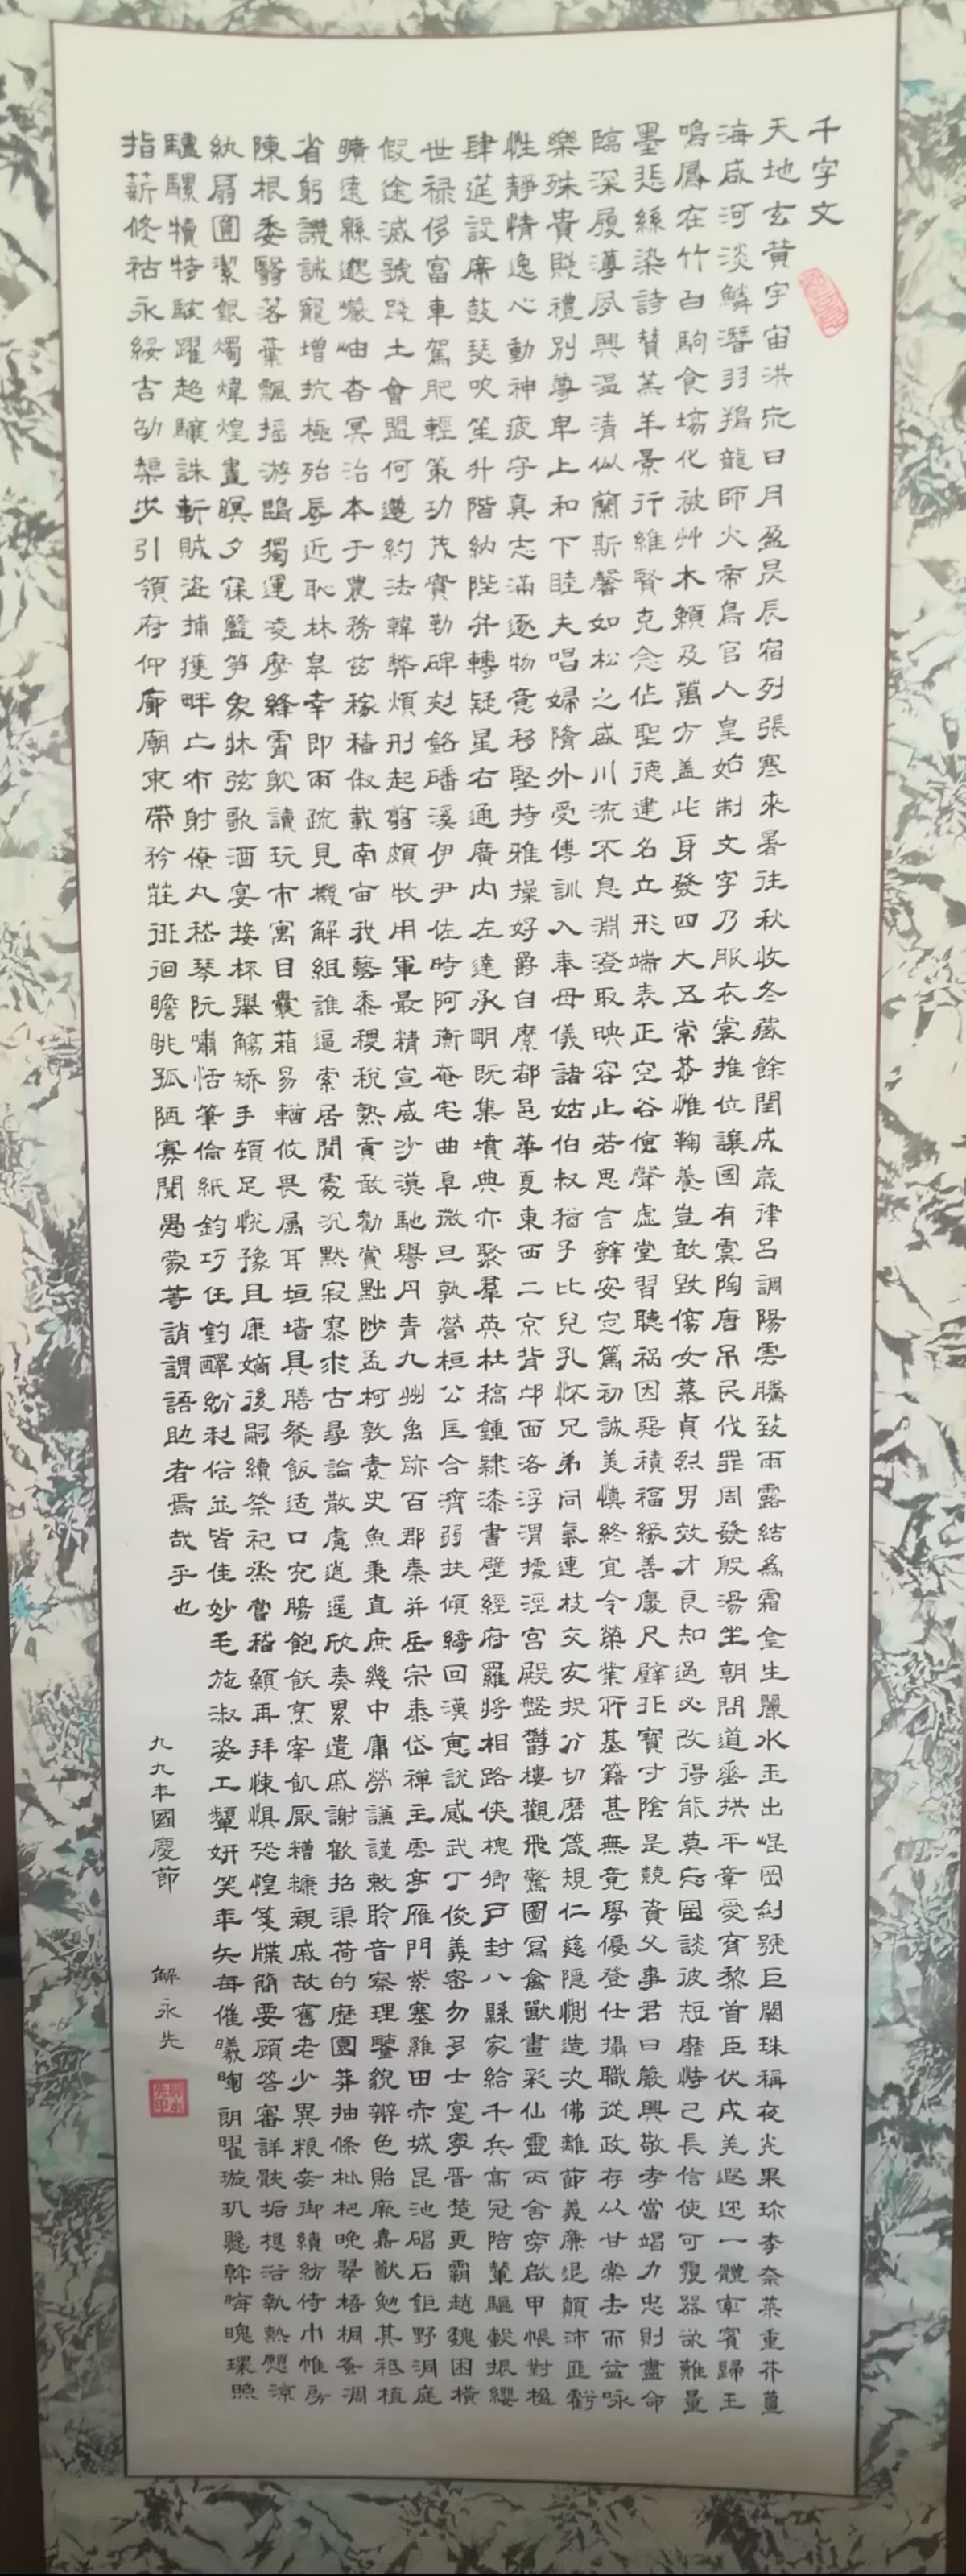 千字文
天地玄黃宇宙洪荒日月盈昃辰宿列張寒來暑往秋收冬藏餘閏成歲律呂調陽雲騰致雨露結爲霜金生麗水玉出崐岡劍號巨闕珠稱夜光果珍李柰菜重芥薑
海咸河淡鱗潛羽翔龍師火帝鳥官人皇始制文字乃服衣裳推位讓國有虞陶唐吊民伐罪周發殷湯坐朝問道垂拱平章愛育黎首臣伏戎羌遐邇一體率賓歸王
鳴鳳在竹白駒食場化被艸木賴及萬方蓋此身發四大五常恭惟鞠養豈敢毀傷女慕貞烈男效才良知過必改得能莫忘罔談彼短靡恃己長信使可覆器欲難量
墨悲絲染詩贊羔羊景行維賢克念作聖德建名立形端表正空谷傳聲虛堂習聽禍因惡積福緣善慶尺璧非寶寸陰是競資父事君曰嚴與敬孝當竭力忠則盡命
臨深履薄夙興温清似蘭斯馨如松之盛川流不息淵澄取映容止若思言辭安定篤初誠美慎終宜令榮業所基籍甚無竟學優登仕攝職從政存以甘棠去而益咏
樂殊貴賤禮別尊卑上和下睦夫唱婦隨外受傅訓入奉母儀諸姑伯叔猶子比兒孔懷兄弟同氣連枝交友投分切磨箴規仁慈隱惻造次佛離節義廉退顛沛匪虧
性靜情逸心動神疲守真志滿逐物意移堅持雅操好爵自縻都邑華夏東西二京背邙面洛浮渭據涇宮殿盤鬱樓觀飛驚圖寫禽獸畫彩仙靈丙舍旁啟甲帳對楹
肆筵設席鼓瑟吹笙升階納陛弁轉疑星右通廣內左達承明既集墳典亦聚羣英杜稿鍾隸漆書壁經府羅將相路俠槐卿戶封八縣家給千兵高冠陪輦驅轂振纓
世祿侈富車駕肥輕策功茂實勒碑刻銘磻溪伊尹佐時阿衡奄宅曲阜微旦孰營桓公匡合濟弱扶傾綺回漢惠說感武丁俊義密勿多士寔寧晉楚更霸趙魏困橫
假途滅虢踐土會盟何遵約法韓弊煩刑起翦頗牧用軍最精宣威沙漠馳譽丹青九州禹跡百郡秦并岳宗泰岱禪主雲亭雁門紫塞雞田赤城昆池碣石鉅野洞庭
曠遠緜邈巖岫杳冥治本于農務茲稼穡俶載南畝我藝黍稷稅熟貢敢勸賞黜陟孟柯敦素史魚秉直庶幾中庸勞謙謹敕聆音察理鑒貌辨色貽厥嘉猷勉其祗植
省躬譏誡寵增抗極殆辱近恥林皋幸即兩疏見機解組誰逼索居閒處沉默寂寥求古尋論散慮逍遙欣奏累遣慼謝歡招渠荷的歷園莽抽條枇杷晚翠梧桐蚤凋
陳根委翳落葉飄搖游鵾獨運凌摩絳霄耽讀玩市寓目囊箱易輶攸畏屬耳垣墻具膳餐飯适口充腸飽飫烹宰飢厭糟糠親戚故舊老少異粮妾御績紡侍巾帷房
紈扇圓潔銀燭煒煌晝瞑夕寐籃筍象牀弦歌酒宴接杯舉觴矯手頓足悅豫且康嫡後嗣續祭祀烝嘗稽顙再拜悚懼恐惶箋牒簡要顧答審詳骸垢想浴執熱願涼
驢騾犢特駭躍超驤誅斬賊盜捕獲畔亡布射僚丸嵇琴阮嘯恬筆倫紙鈞巧任釣釋紛利俗並皆佳妙毛施淑姿工顰妍笑年矢每催曦晦朗曜璇璣懸斡晦魄環照
指薪修祜永綏吉劭榘步引領府仰廊廟束帶矜莊徘徊瞻眺孤陋寡聞愚蒙等誚謂語助者焉哉乎也
九九年國慶節 解永先